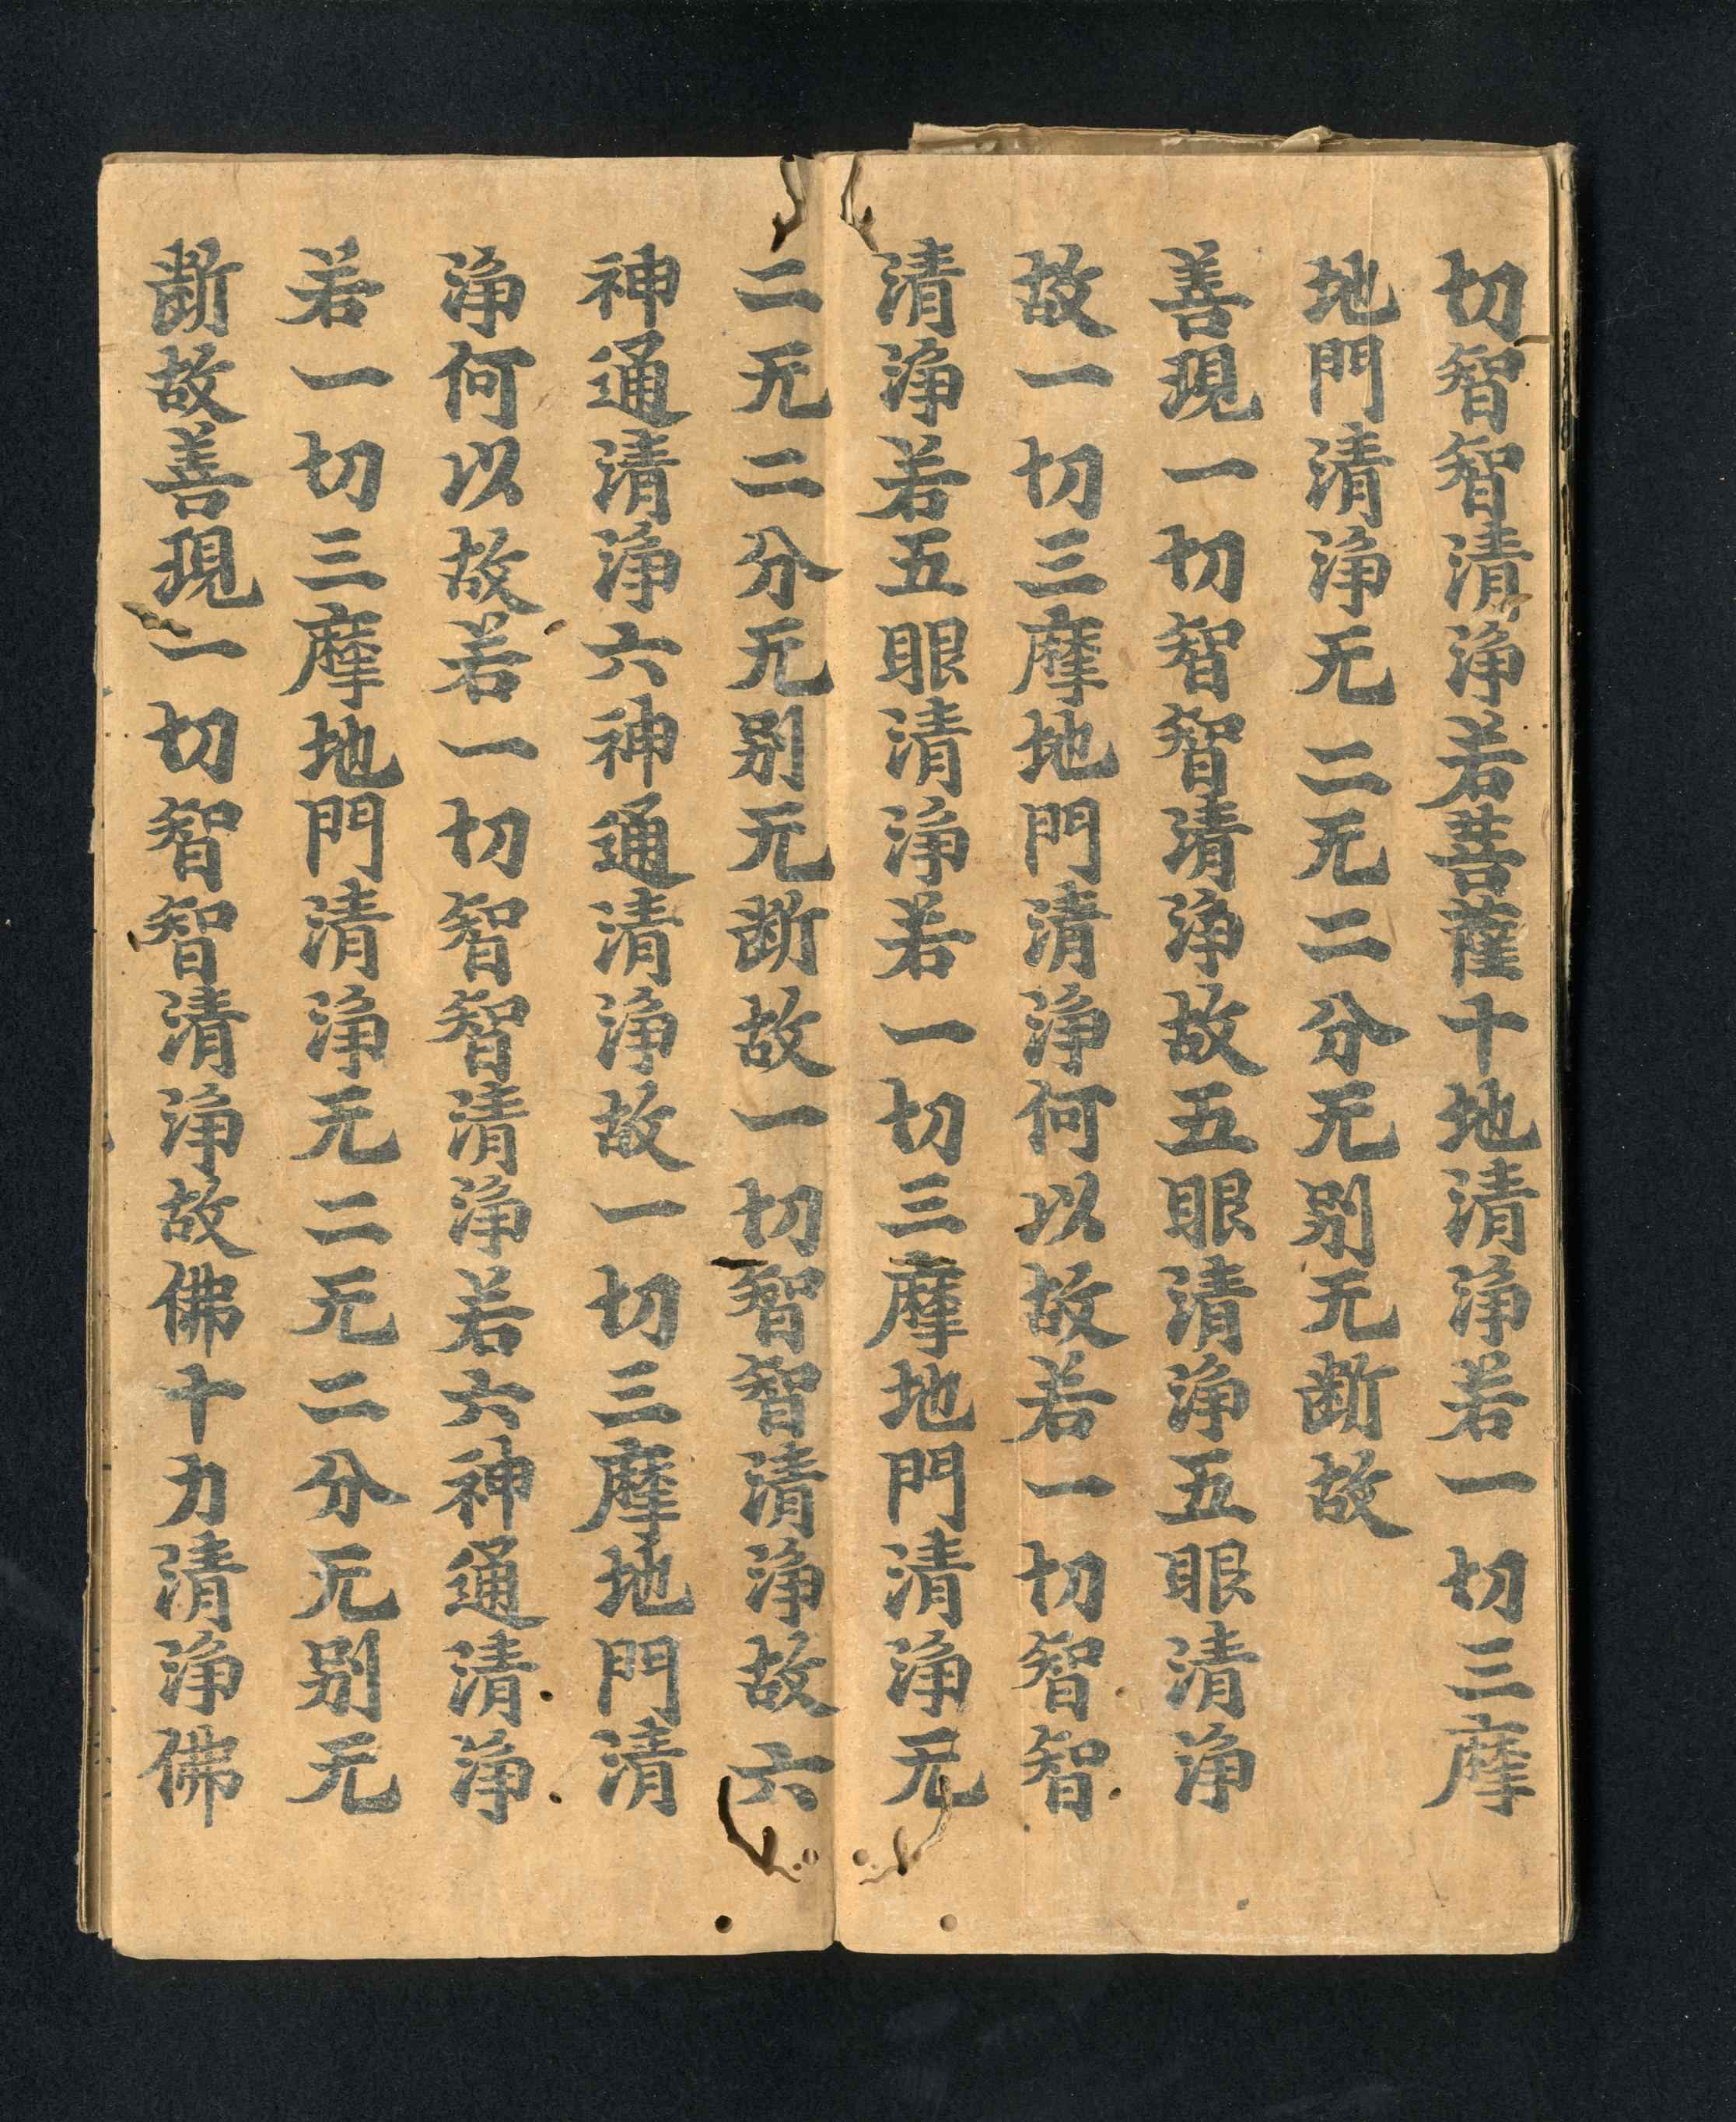 切智智清淨若菩薩十地清淨若一切三摩
地門清淨无二无二分无別无斷故
善現一切智智清淨故五眼清淨五眼清淨
故一切三摩地門清淨何以故若一切智智
清淨若五眼清淨若一切三摩地門清淨无
二无二分无別无斷故一切智智清淨故六
神通清淨六神通清淨故一切三摩地門清
淨何以故若一切智智清淨若六神通清淨
若一切三摩地門清淨无二无二分无別无
斷故善現一切智智清淨故佛十力清淨佛